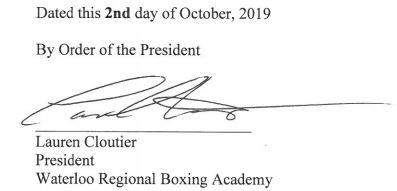 Dated this 2nd day of October, 2019
By Order of the President
Lauren Cloutier
President
Waterloo Regional Boxing Academy